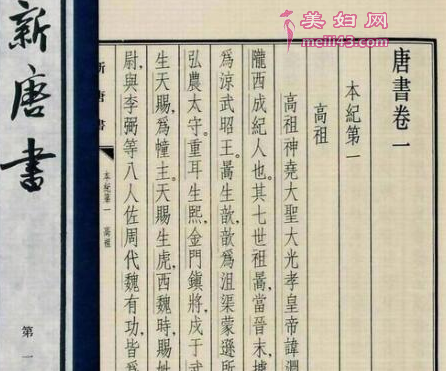 美妇网
meili43.com
唐書卷一
本紀第一
高祖
高祖神堯大聖大光孝皇帝諱淵
隴西成紀人也。其七世祖暠,當晉末,據
爲涼武昭王。暠生歆,歆爲沮渠蒙遜所
弘農太守。重耳生熙,金門鎮將,戍于武
生天賜,爲幢主。天賜生虎,西魏時,賜姓
尉,與李弼等八人佐周代魏有功,皆爲
新唐書
本紀第一 高祖
新唐書
第一